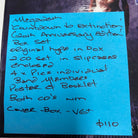 Megadeth
Countdown to Extinction
(20th Anniversary Edition)
Box Set
Original Hype in Box
2 CD set in slipcase
4 x Pics individual
Band Members
Poster & Booklet
Both CD's NM
Cover Box - VG+
$110